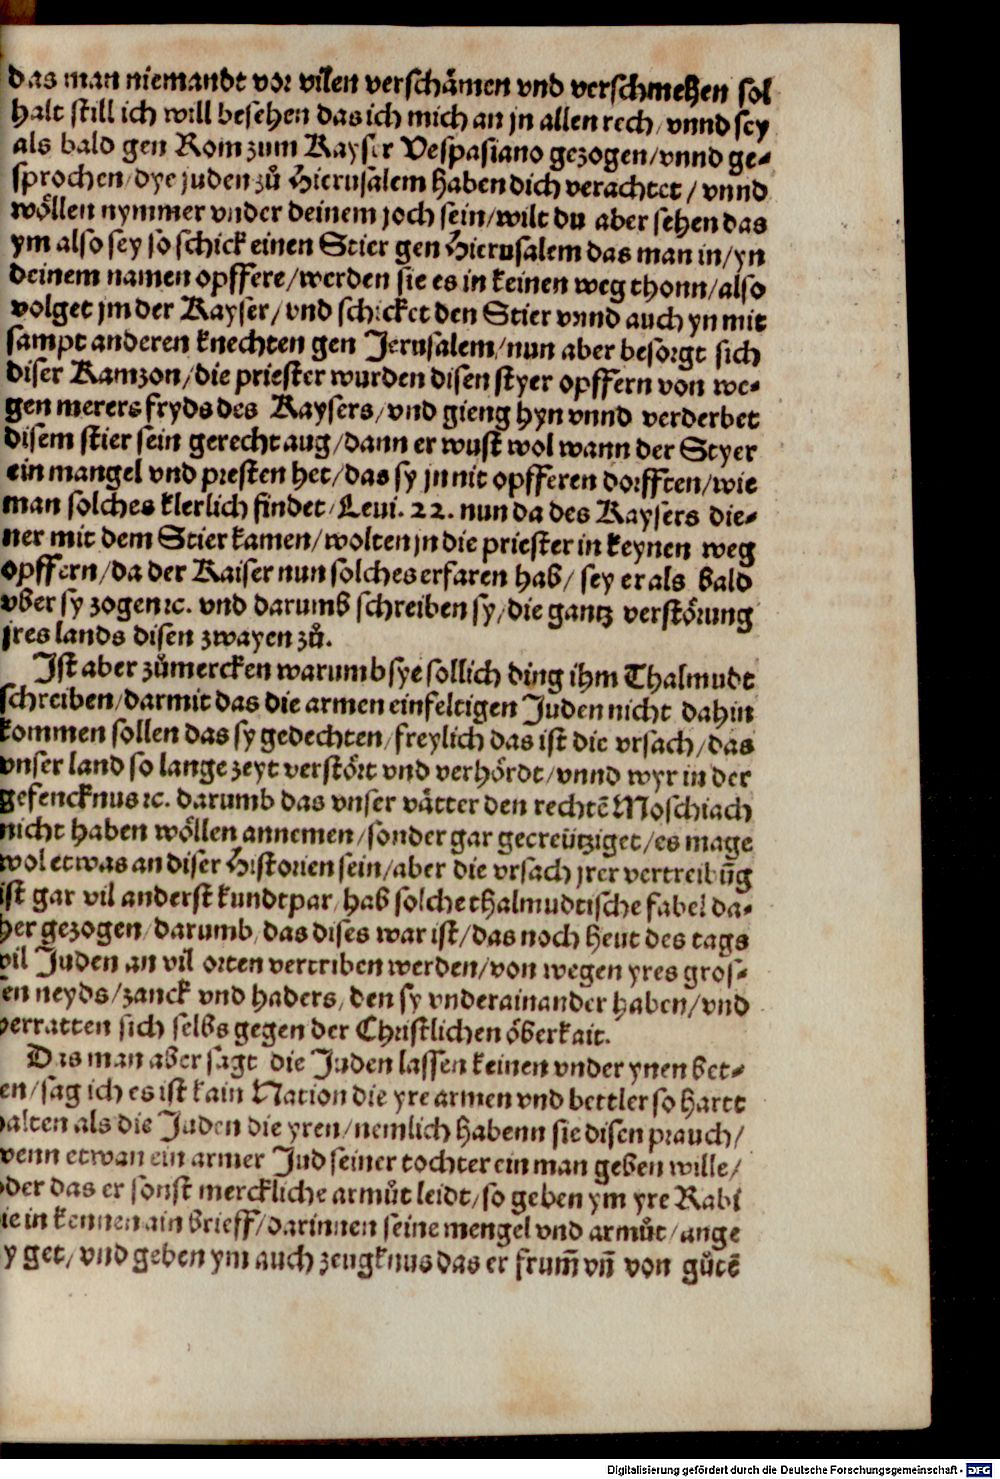 das man niemandt vor vilen verschämen vnd verschmehen sol
halt still ich will besehen das ich mich an jn allen rech/ vnnd sey
als bald gen Rom zum Kayser Vespasiano gezogen/vnnd ge⸗
sprochen/dye juden zů Hierusalem haben dich verachtet/ vnnd
wöllen nymmer vnder deinem joch sein/wilt du aber sehen das
ym also sey so schick einen Stier gen Hierusalem das man in/yn
deinem namen opffere/werden sie es in keinen weg thonn/also
volget jm der Kayser/ vnd schicket den Stier vnnd auch yn mit
sampt anderen knechten gen Jerusalem/nun aber besorgt sich
diser Kamzon/die priester wurden disen styer opffern von we⸗
gen merers fryds des Kaysers/vnd gieng hyn vnnd verderbet
disem stier sein gerecht aug/dann er wust wol wann der Styer
ein mangel vnd presten het/das sy jn nit opfferen dorfften/wie
man solches klerlich findet/Leui. 22. nun da des Kaysers die⸗
ner mit dem Stier kamen/wolten jn die priester in keynen weg
opffern/da der Kaiser nun solches erfaren hab/ sey er als bald
vber sy zogen ꝛc. vnd darumb schreiben sy/die gantz verstörung
jres lands disen zwayen zů.
Jst aber zůmercken warumb sye sollich ding ihm Thalmudt
schreiben/darmit das die armen einfeltigen Juden nicht dahin
kommen sollen das sy gedechten/freylich das ist die vrsach/das
vnser land so lange zeyt verstört vnd verhördt/vnnd wyr in der
gefencknus ꝛc. darumb das vnser vätter den rechtē Moschiach
nicht haben wöllen annemen/sonder gar gecreütziget/es mage
wol etwas an diser Historien sein/aber die vrsach jrer vertreibūg
ist gar vil anderst kundtpar/hab solche thalmudtische fabel da⸗
her gezogen/darumb/das dises war ist/das noch heut des tags
vil Juden an vil orten vertriben werden/von wegen yres gros⸗
en neyds/zanck vnd haders/den sy vnderainander haben/vnd
verratten sich selbs gegen der Christlichen öberkait.
Das man aber sagt die Juden lassen keinen vnder ynen bet⸗
en/sag ich es ist kain Nation die yre armen vnd bettler so hartt
halten als die Juden die yren/nemlich habenn sie disen prauch/
wenn etwan ein armer Jud seiner tochter ein man geben wille/
oder das er sonst merckliche armůt leidt/so geben ym yre Rabi
ie in kennen ain brieff/darinnen seine mengel vnd armůt/ange
y get/vnd geben ym auch zeugknus das er frum̄ vn̄ von gůtē
Digitalisierung gefördert durch die Deutsche Forschungsgemeinschaft - DFG